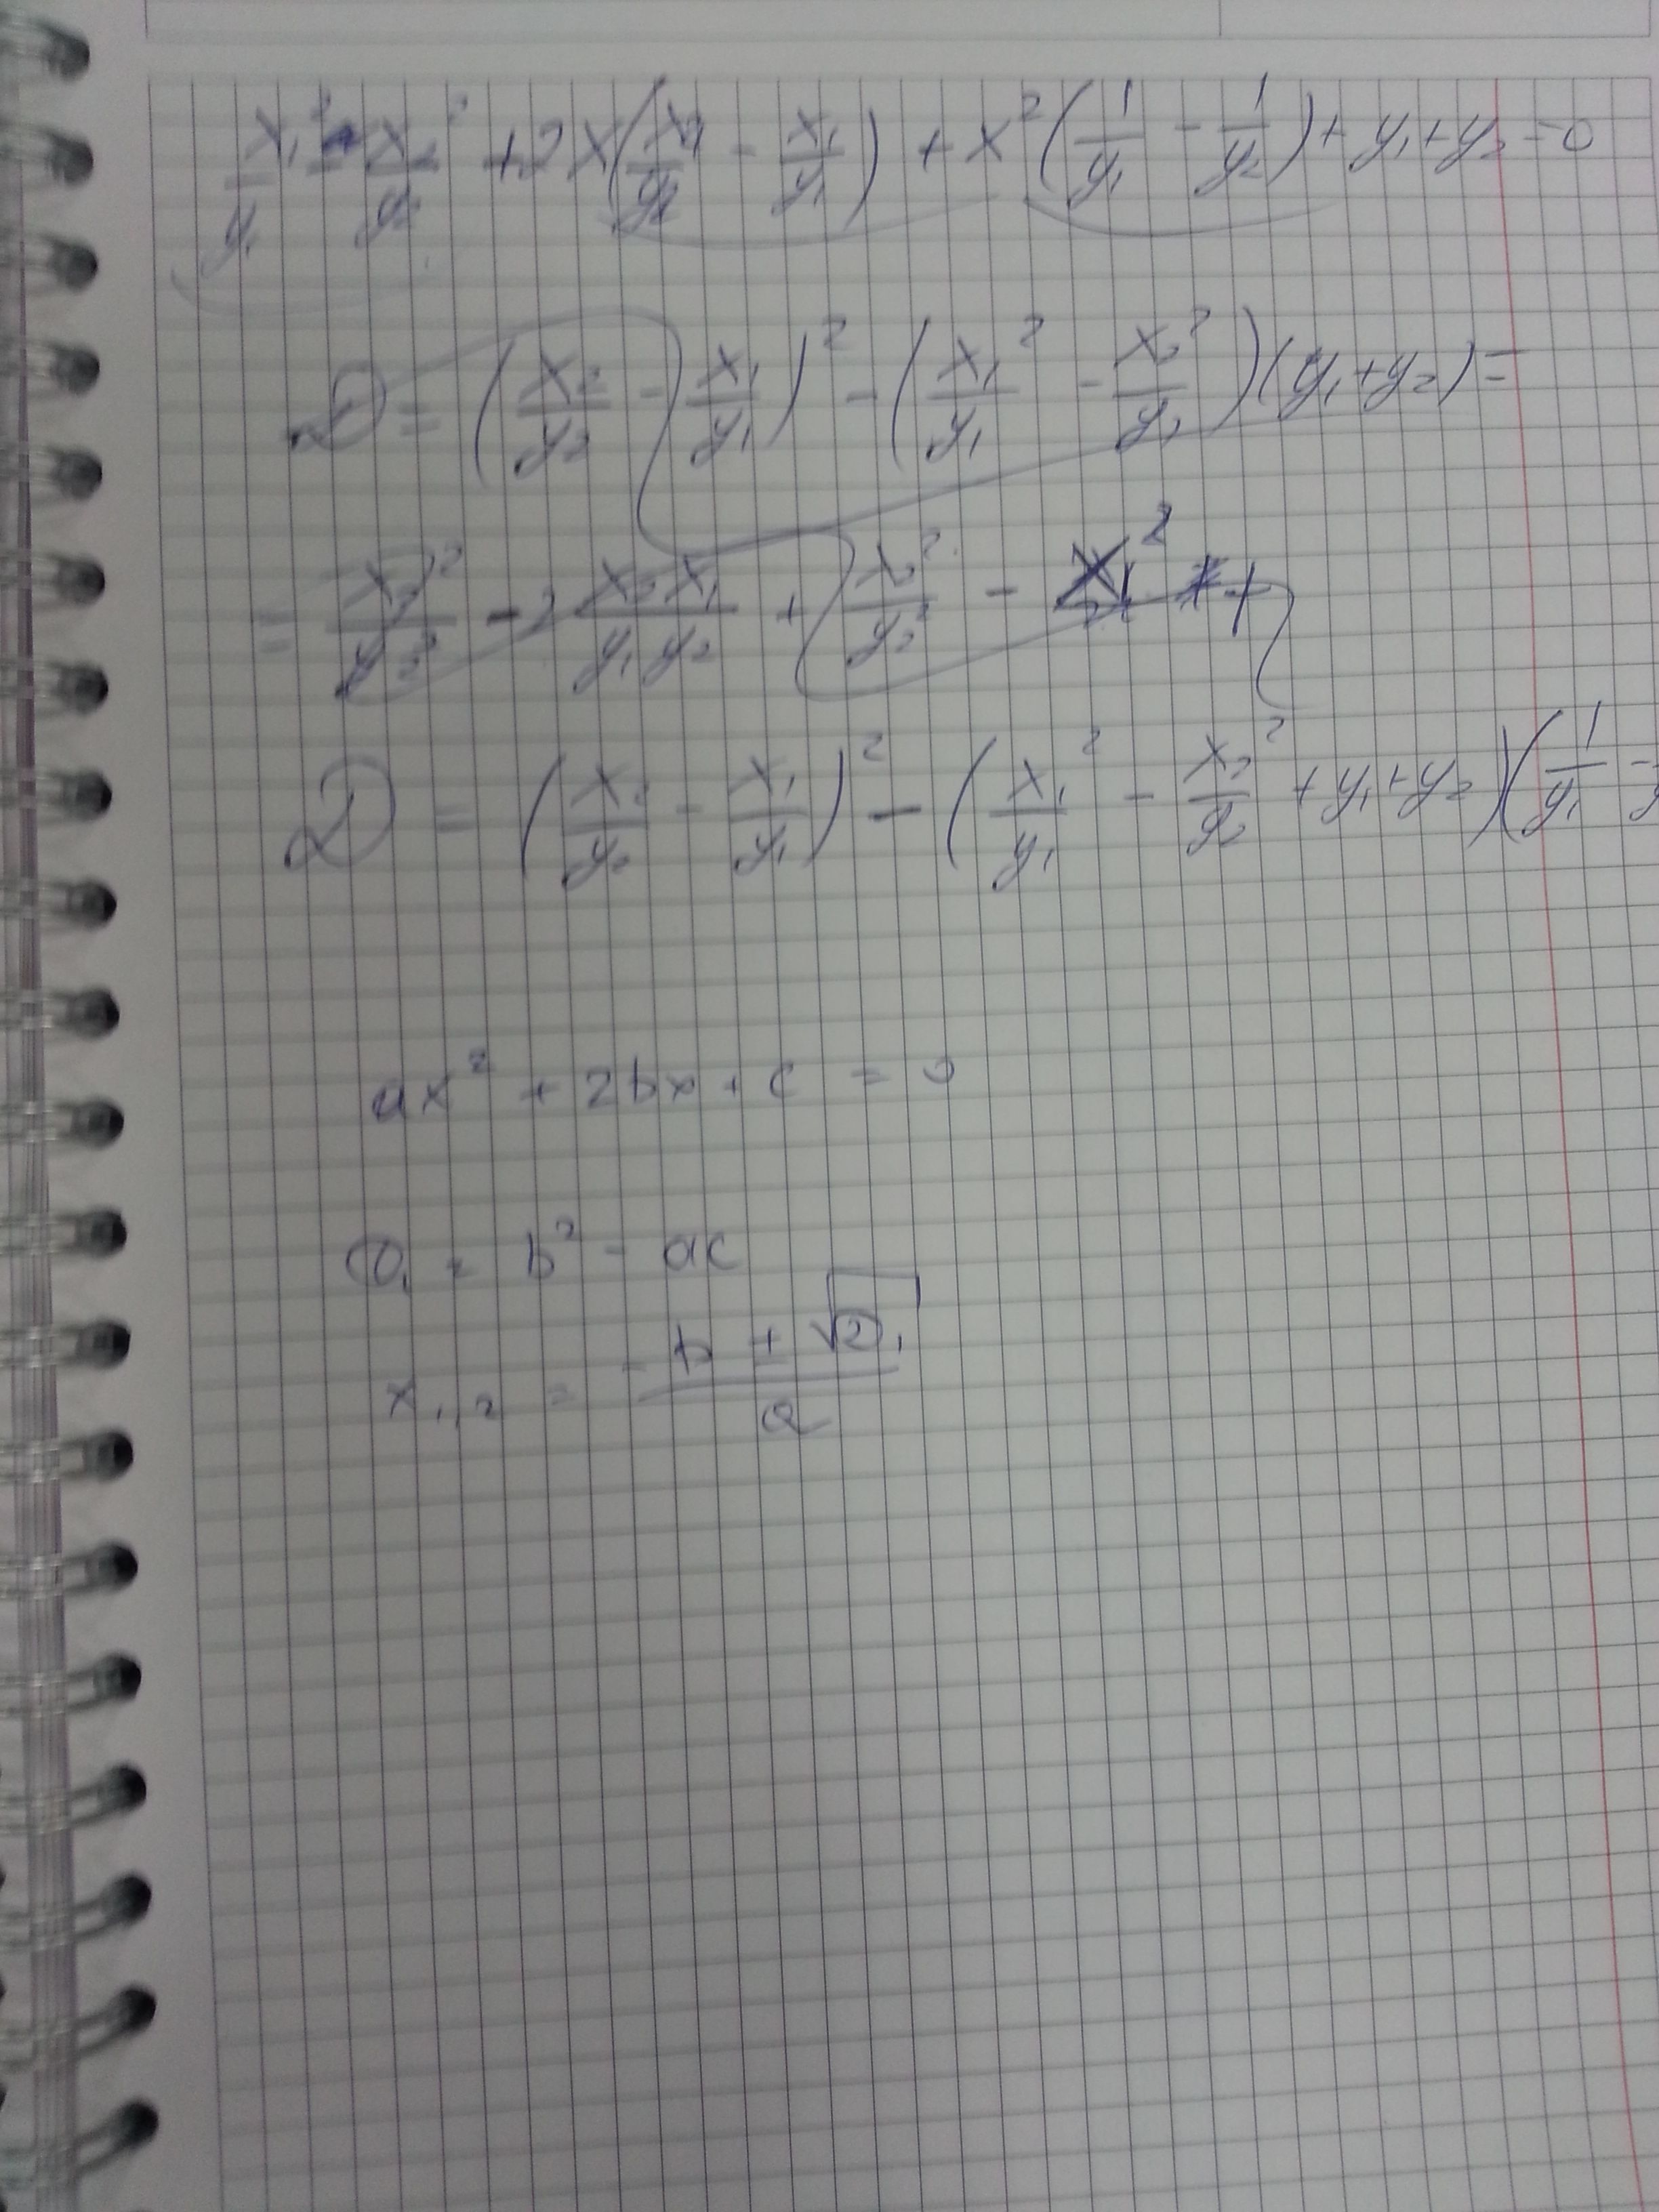 x₁²/y₁ - x₂²/y₂ + 2x(x₂/y₂ - x₁/y₁) + x²(1/y₁ - 1/y₂) + y₁ + y₂ = 0
D = (x₂/y₂ - x₁/y₁)² - (x₁²/y₁ - x₂²/y₂)(y₁ + y₂) =
= x₂²/y₂² - 2 x₂x₁/y₁y₂ + x₂²/y₂² -
D = (x₂/y₂ - x₁/y₁)² - (x₁²/y₁ - x₂²/y₂ + y₁ + y₂)(1/y₁ -
ax² + 2bx + c = 0
D₁ = b² - ac
x₁,₂ = (-b ± √D₁)/a